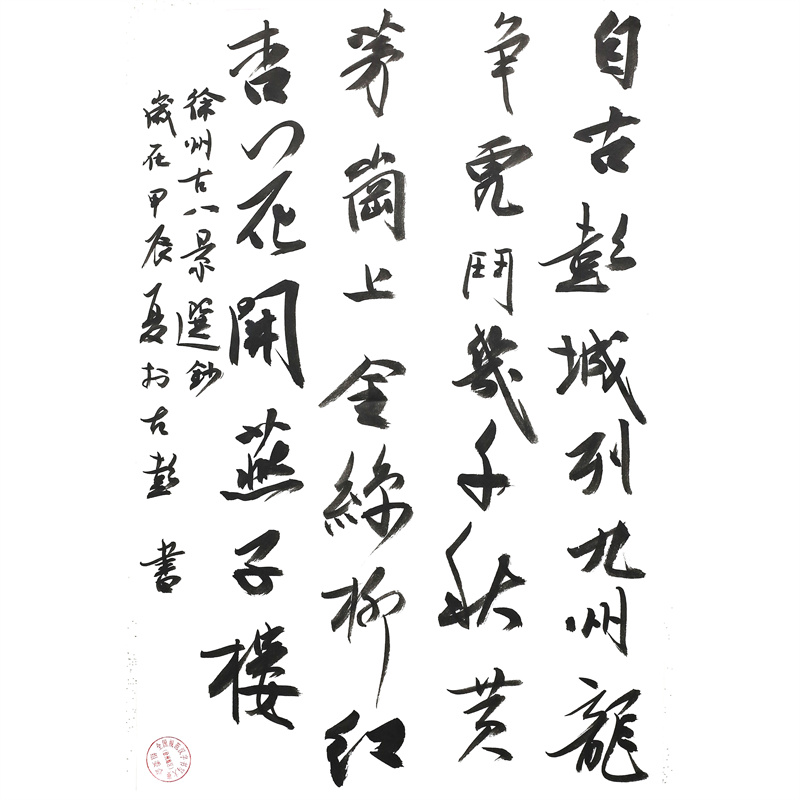 自古彭城列九州龍
争虎鬥幾千秋黄
茅崗上金絲柳紅
杏花開燕子樓
徐州古八景選鈔
歲在甲辰夏於古彭 書